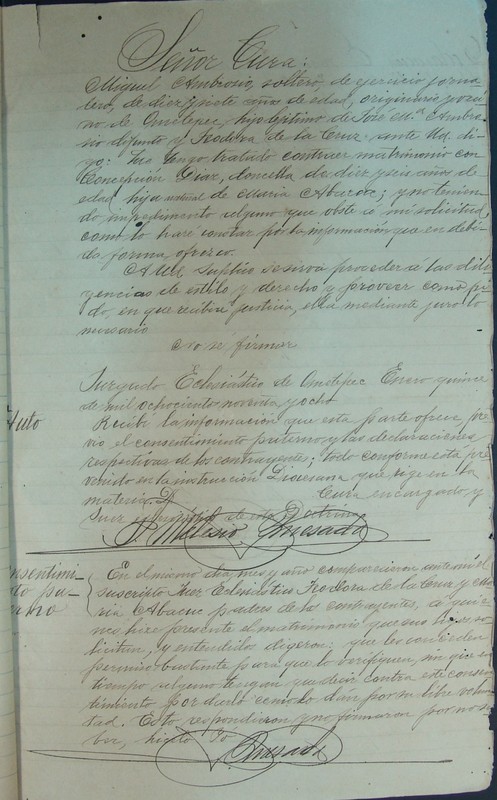 Señor Cura:
Miguel Ambrosio, soltero, de ejercicio jorna-
lero, de diez y siete años de edad, originario y veci-
no de Ometepec, hijo lejitimo de José Mª Ambro-
sio difunto y Teodora de la Cruz ante Ud. di-
go: Que tengo tratado contraer matrimonio con
Concepción Diaz, doncella de diez y seis años de
edad hija natural de Maria Abacuc; y no tenien-
do impedimento alguno que obste á mi solicitud,
como lo haré constar por la información que en debi-
da forma ofrezco.
A Ud. suplico se sirva proceder á las dili-
gencias de estilo y derecho y proveer como pi-
do, en que recibiré justicia, ella mediante juro lo
necesario
No sé firmar
Juzgado Eclesiástico de Ometepec Enero quince
de mil ochocientos noventa y ocho
Auto
Recibi la información que esta parte ofrece, pre-
vio el consentimiento paterno y las declaraciones
respectivas de los contrayentes; todo conforme está pre-
venido en la instrucción Diocesana que rige en la
materia. Cura encargado y
Juez de esta Doctrina
Quesada
En el mismo dia, mes y año comparecieron ante mi el
suscripto Juez Eclesiástico Teodora de la Cruz y Ma-
ria Abacuc padres de los contrayentes, á quie-
nes hice presente el matrimonio que sus hijos so-
licitan, y entendidos digeron: que les conceden
permiso bastante para que lo verifiquen, sin que en
tiempo alguno tengan que decir contra este consen-
timiento por darlo como lo dan por su libre volun-
tad. Esto respondieron y no firmaron por no sa-
ber, hícelo Yo
Quesada